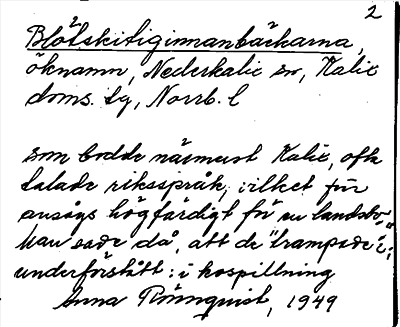 2
Blötskitiginnanbäckarna,
öknamn, Nederkalix sn, Kalix
doms. tg, Norrb. l
som bodde närmast Kalix, ofta
talade riksspråk, vilket för
ansågs högfärdigt för en landsbo.
Man sade då, att de "trampade i",
underförstått: i kospillning
Anna Rönnquist, 1949